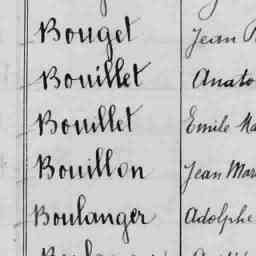 Bouget Jean
Bouillet Anato
Bouillet Emile Ma
Bouillon Jean Mar
Boulanger Adolphe